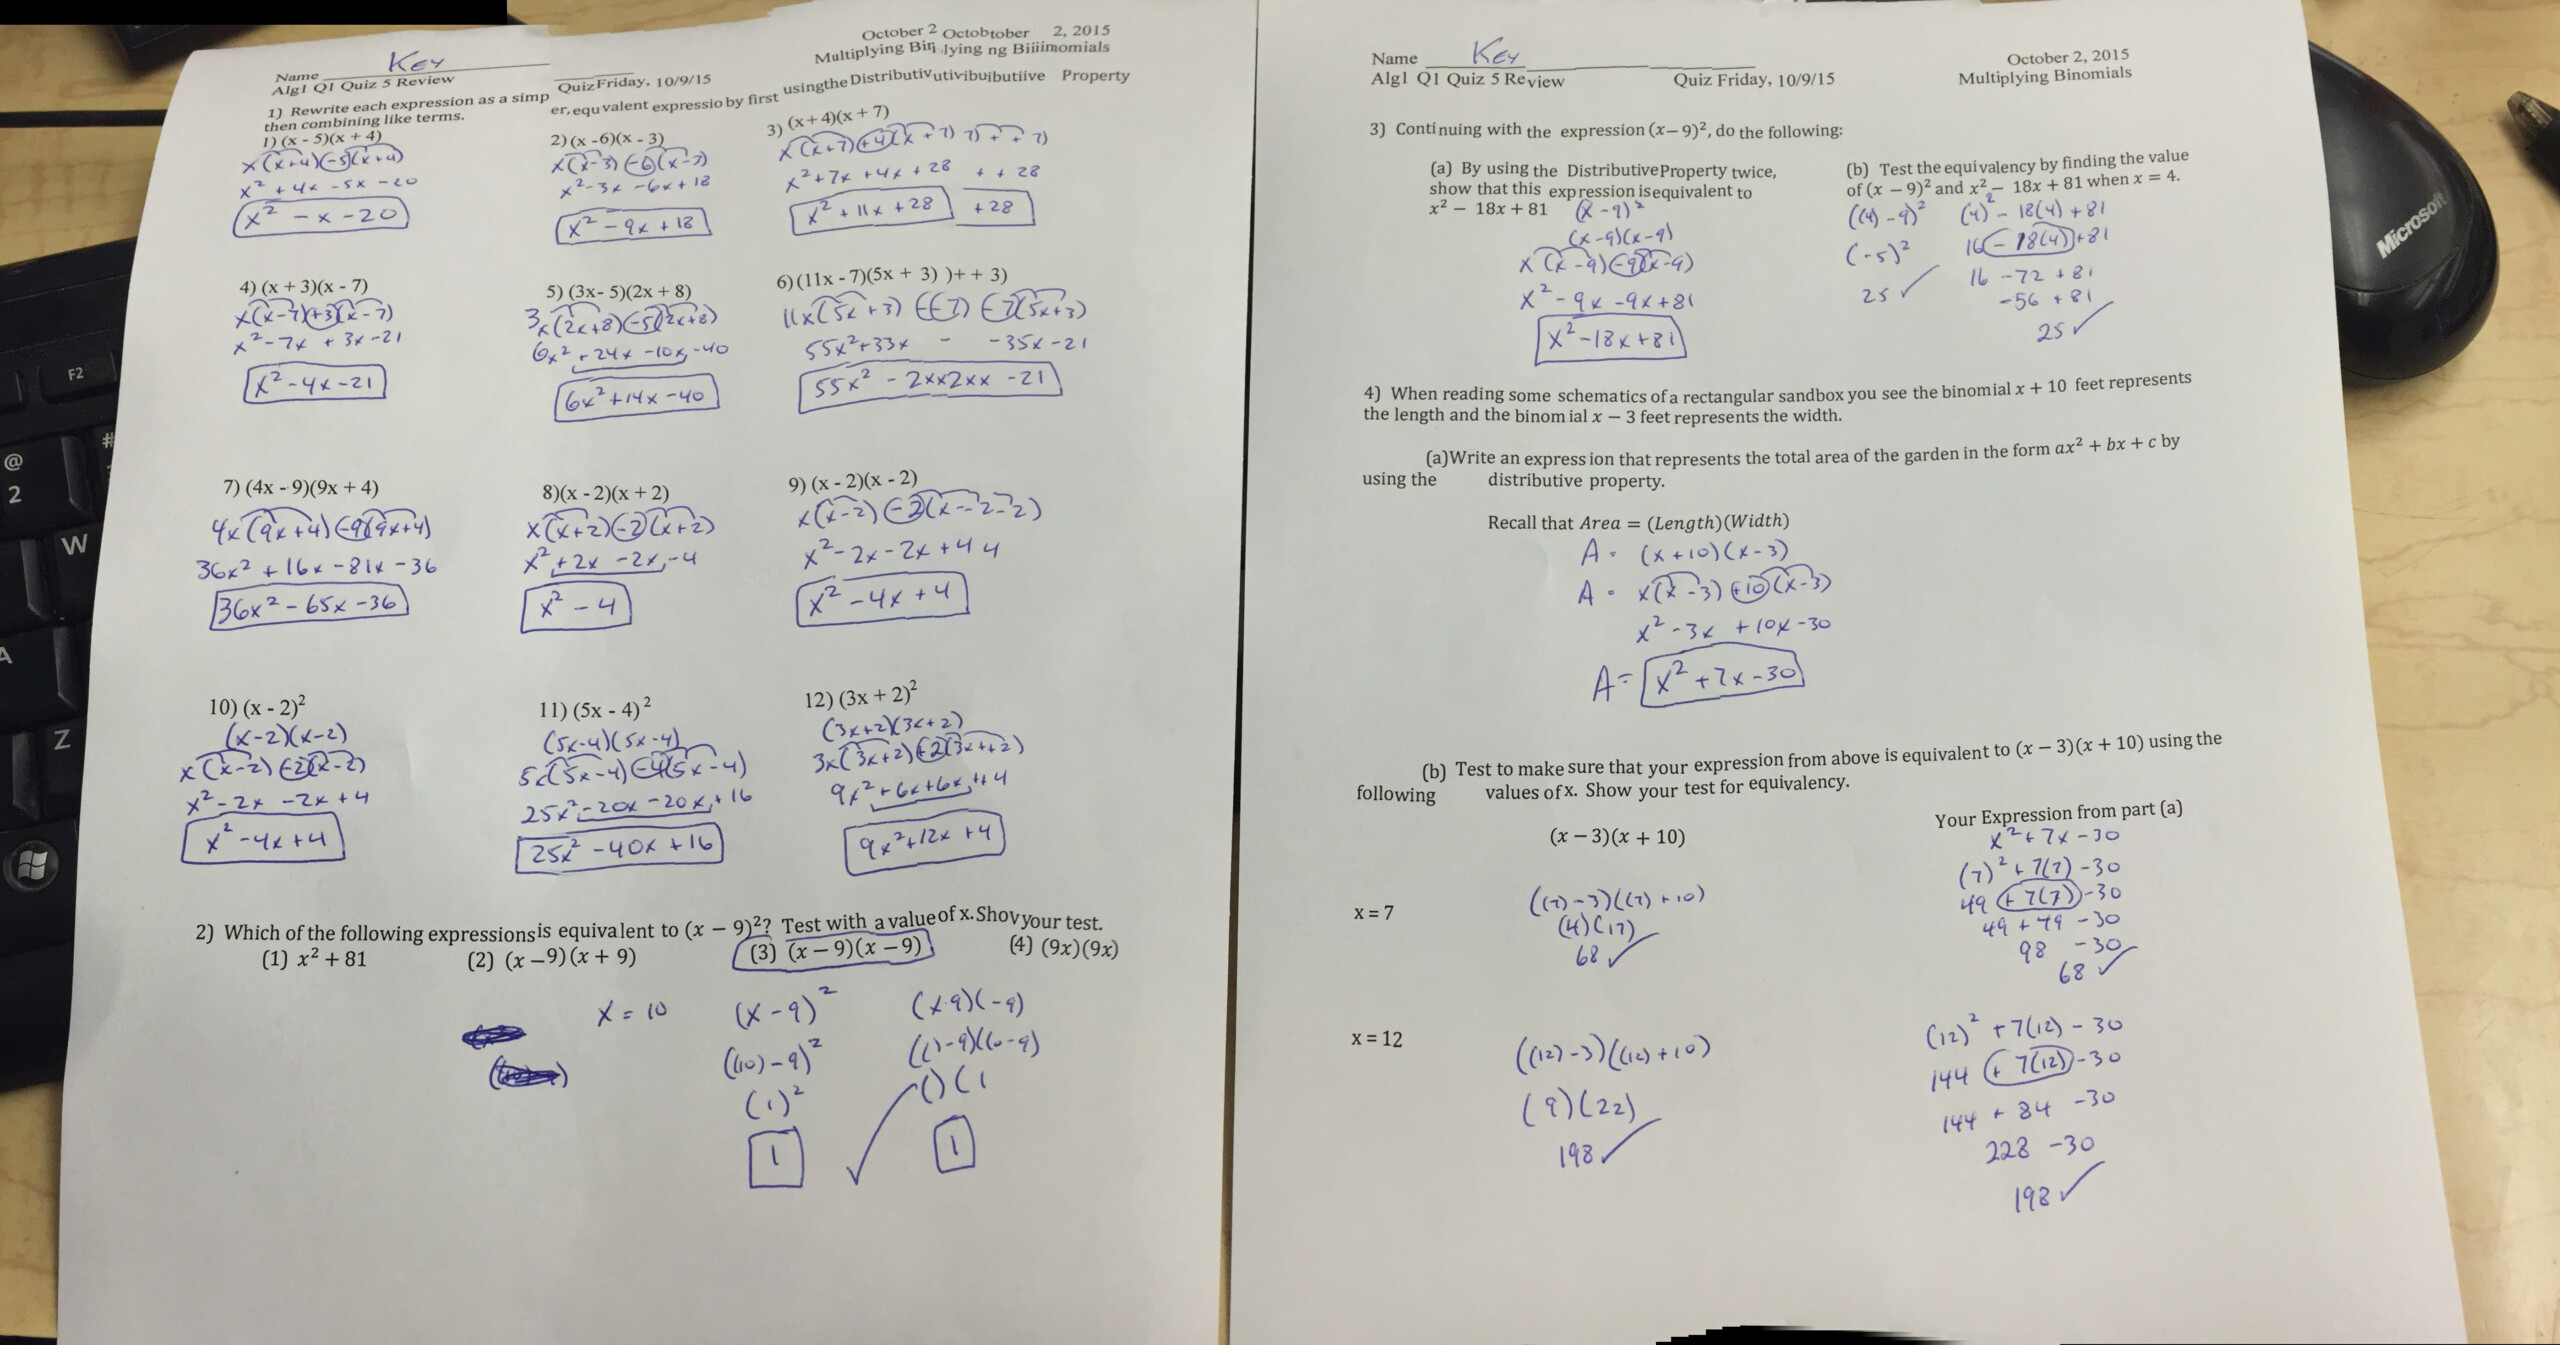 Name Key
Alg1 Q1 Quiz 5 Review Quiz Friday, 10/9/15
October 2 Octobtober 2, 2015
Multiplying Bin lying ng Biiiimomials
1) Rewrite each expression as a simp er, equvalent expressio by first usingthe Distributivutivibuibutiive Property
then combining like terms.
1) (x - 5)(x + 4)
x(x+4)(-5)(x+4)
x² + 4x - 5x - 20
x² - x - 20
2) (x -6)(x - 3)
x(x-3)(-6)(x-3)
x² - 3x - 6x + 18
x² - 9x + 18
3) (x + 4)(x + 7)
x(x+7)+4(x+7) 7) + + 7)
x² + 7x + 4x + 28 + + 28
x² + 11x + 28 + 28
4) (x + 3)(x - 7)
x(x-7)+3(x-7)
x² - 7x + 3x - 21
x² - 4x - 21
5) (3x- 5)(2x + 8)
3x(2x+8)-5(2x+8)
6x² + 24x - 10x - 40
6x² + 14x - 40
6) (11x - 7)(5x + 3) )+ + 3)
11x(5x+3) (-7) -7(5x+3)
55x² + 33x - - 35x - 21
55x² - 2xx2xx - 21
7) (4x - 9)(9x + 4)
4x(9x+4)-9(9x+4)
36x² + 16x - 81x - 36
36x² - 65x - 36
8)(x - 2)(x + 2)
x(x+2)-2(x+2)
x² + 2x - 2x - 4
x² - 4
9) (x - 2)(x - 2)
x(x-2) -2(x--2-2)
x² - 2x - 2x + 4 4
x² - 4x + 4
10) (x - 2)²
(x-2)(x-2)
x(x-2) -2(x-2)
x² - 2x - 2x + 4
x² - 4x + 4
11) (5x - 4)²
(5x-4)(5x-4)
5x(5x-4)-4(5x-4)
25x² - 20x - 20x + 16
25x² - 40x + 16
12) (3x + 2)²
(3x+2)(3x+2)
3x(3x+2)+2(3x++2)
9x² + 6x + 6x + + 4
9x² + 12x + 4
2) Which of the following expressionsis equivalent to (x − 9)²? Test with a valueof x.Shovyour test.
(1) x² + 81 (2) (x −9)(x + 9) (3) (x − 9)(x − 9) (4) (9x)(9x)
x = 10 (x-9)² (x-9)(-9)
((10)-9)² (()-9)(10-9)
(1)² ()(1
1 1
Name Key
Alg1 Q1 Quiz 5 Review Quiz Friday, 10/9/15
October 2, 2015
Multiplying Binomials
3) Continuing with the expression (x− 9)², do the following:
(a) By using the DistributiveProperty twice,
show that this expression isequivalent to
x² − 18x + 81
(x-9)²
(x-9)(x-9)
x(x-9)-9(x-9)
x² - 9x - 9x + 81
x² - 18x + 81
(b) Test the equivalency by finding the value
of (x − 9)² and x² − 18x + 81 when x = 4.
((4)-9)² (4)² - 18(4) + 81
(-5)² 16 - 18(4) + 81
25 ✓ 16 - 72 + 81
-56 + 81
25 ✓
4) When reading some schematics of a rectangular sandbox you see the binomial x + 10 feet represents
the length and the binom ial x − 3 feet represents the width.
(a)Write an express ion that represents the total area of the garden in the form ax² + bx + c by
using the distributive property.
Recall that Area = (Length)(Width)
A = (x+10)(x-3)
A = x(x-3)+10(x-3)
x² - 3x + 10x - 30
A = x² + 7x - 30
(b) Test to make sure that your expression from above is equivalent to (x − 3)(x + 10) using the
following values of x. Show your test for equivalency.
(x − 3)(x + 10) Your Expression from part (a)
x² + 7x - 30
x = 7
((7)-3)((7)+10)
(4)(17)
68 ✓
(7)² + 7(7) - 30
49 + 7(7) - 30
49 + 49 - 30
98 - 30
68 ✓
x = 12
((12)-3)((12)+10)
(9)(22)
198 ✓
(12)² + 7(12) - 30
144 + 7(12) - 30
144 + 84 - 30
228 - 30
198 ✓
Microsoft
F2
@
2
#
W
A
Z